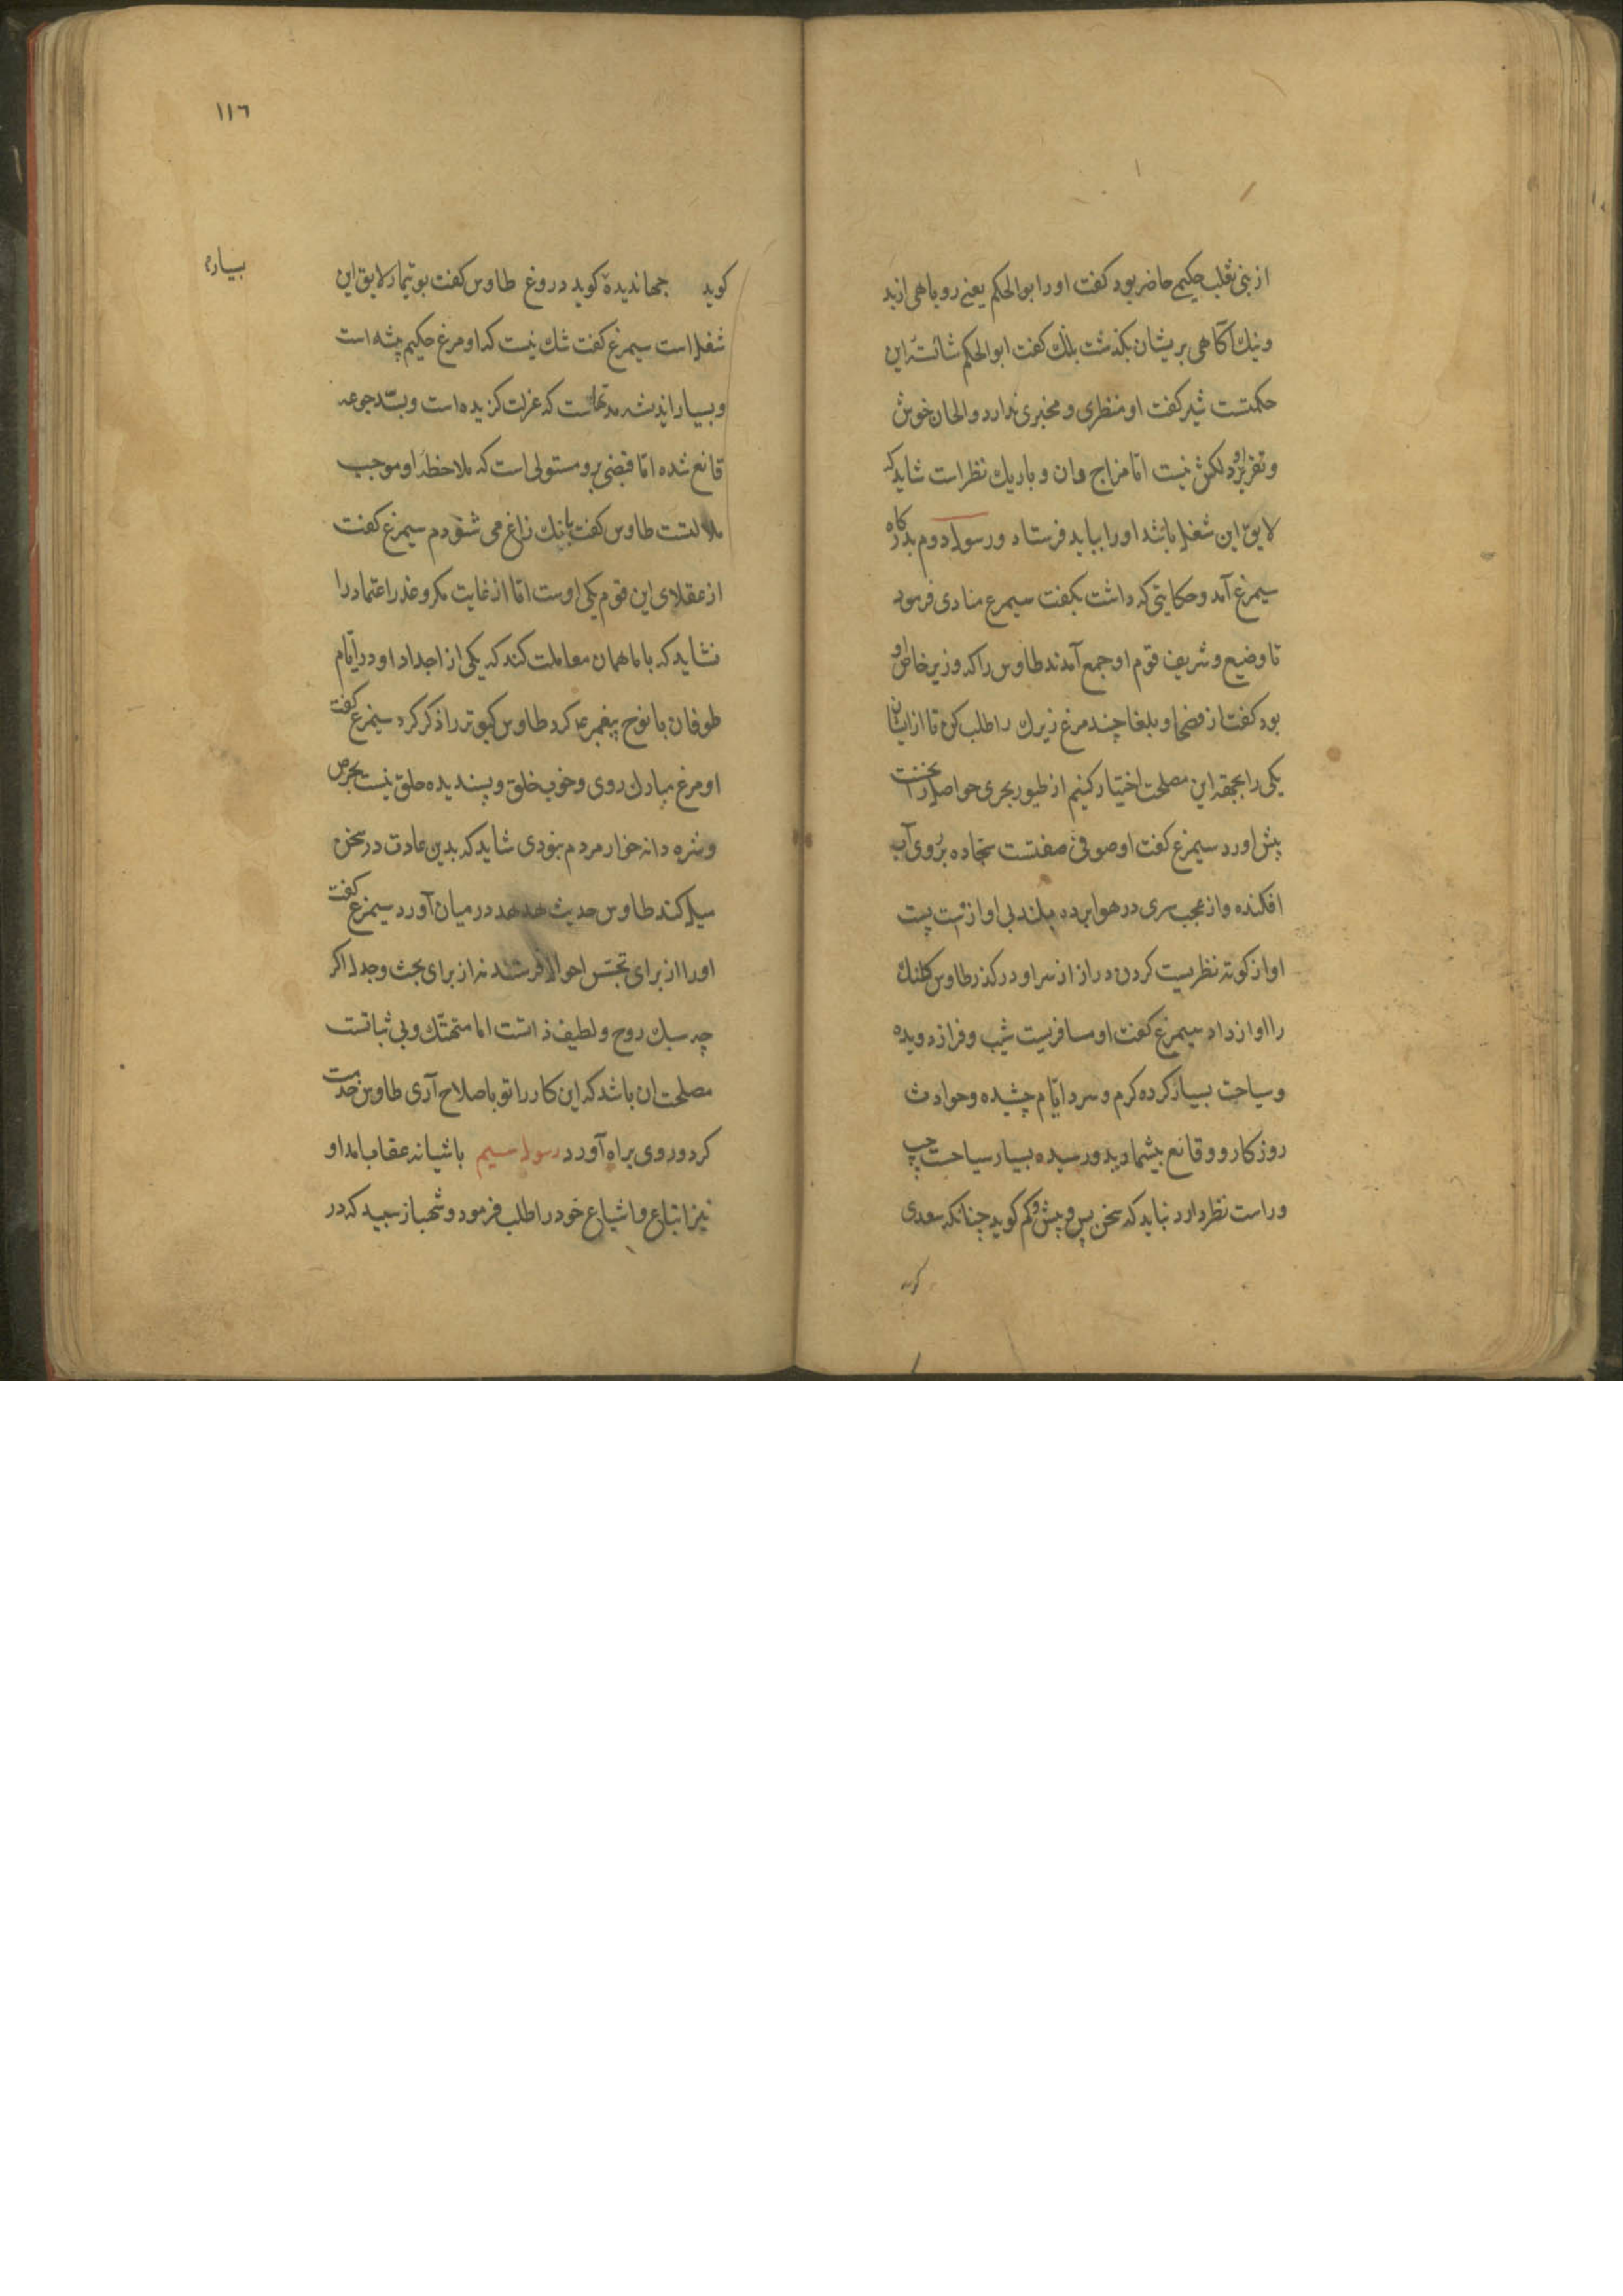 از بنی ثعلب حکیمی حاضر بود کفت اورا ابوالحکم یعنی روباهی از بد
ونیك آکاهی بریشان بکذشت پلنك کفت ابوالحکم شائستۀ این
حکمتست شیر کفت او منظری و مخبری ندارد و الحان خوش
و تقریر دلکش نیست اما مزاج دان و باریك نظر است شاید که
لایق این شغل باشد اورا بباید فرستاد و رسول دوم بدرکاه
سیمرغ آمد و حکایتی که داشت بکفت سیمرع منادی فرمود
تا وضیع و شریف قوم او جمع آمدند طاوس را که وزیر خاص او
بود کفت از فصحا و بلغا چند مرغ زیرك را طلب کن تا از ایشان
یکی را بجهة این مصلحت اختیار کنیم از طیور بحری حواصل را نخست
پیش اورد سیمرغ کفت او صوفی صفتست سجاده بر روی آب
افکنده و از عجب سری در هوا برده بلند بی اواز پست
اواز کوته نظریست کردن دراز از سر او درکذر طاوس کلنك
را اواز داد سیمرغ کفت او مسافریست شیب و فراز دویده
و سیاحت بسیار کرده کرم و سرد ایام چشیده و حوادث
روزکار و وقائع بیشمار بدو رسیده بسیار سیاحت چپ
و راست نظر دارد نباید که سخن پس و پیش و کم کوید چنانکه سعدی
کوید
١١٦
کوید جهاندیده کوید دروغ طاوس کفت بوتیمار لایق این
شغل است سیمرغ کفت شك نیست که او مرغ حکیم پیشه است
و بسیار اندیشه مدتهاست که عزلت کزیده است و بسد جوعه
قانع شده اما قبضی برو مستولی است که ملاحظۀ او موجب
ملالتست طاوس کفت بانك زاغ می شنودم سیمرغ کفت
از عقلای این قوم یکی اوست اما از غایت مکر و غدر اعتماد را
نشاید که با ما همان معاملت کند که یکی از اجداد او در ایام
طوفان با نوح پیغمبر ع کرد طاوس کبوتر را ذکر کرد سیمرغ کفت
او مرغ مبارك روی و خوب خلق و پسندیده خلق نیست بحرص
و شره دانه خوار مردم بودی شاید که بدین عادت در سخن
میل کند طاوس حدیث هدهد در میان آورد سیمرغ کفت
اورا از برای تجسس احوال فرستند نه از برای بحث و جدل اکر
چه سبك روح و لطیف ذاتست اما متهتك و بی ثباتست
مصلحت ان باشد که این کار را تو باصلاح آری طاوس خدمت
کرد و روی براه آورد رسول سیم باشیانه عقاب امد او
نیز اتباع و اشیاع خود را طلب فرمود و شهباز سپید که در